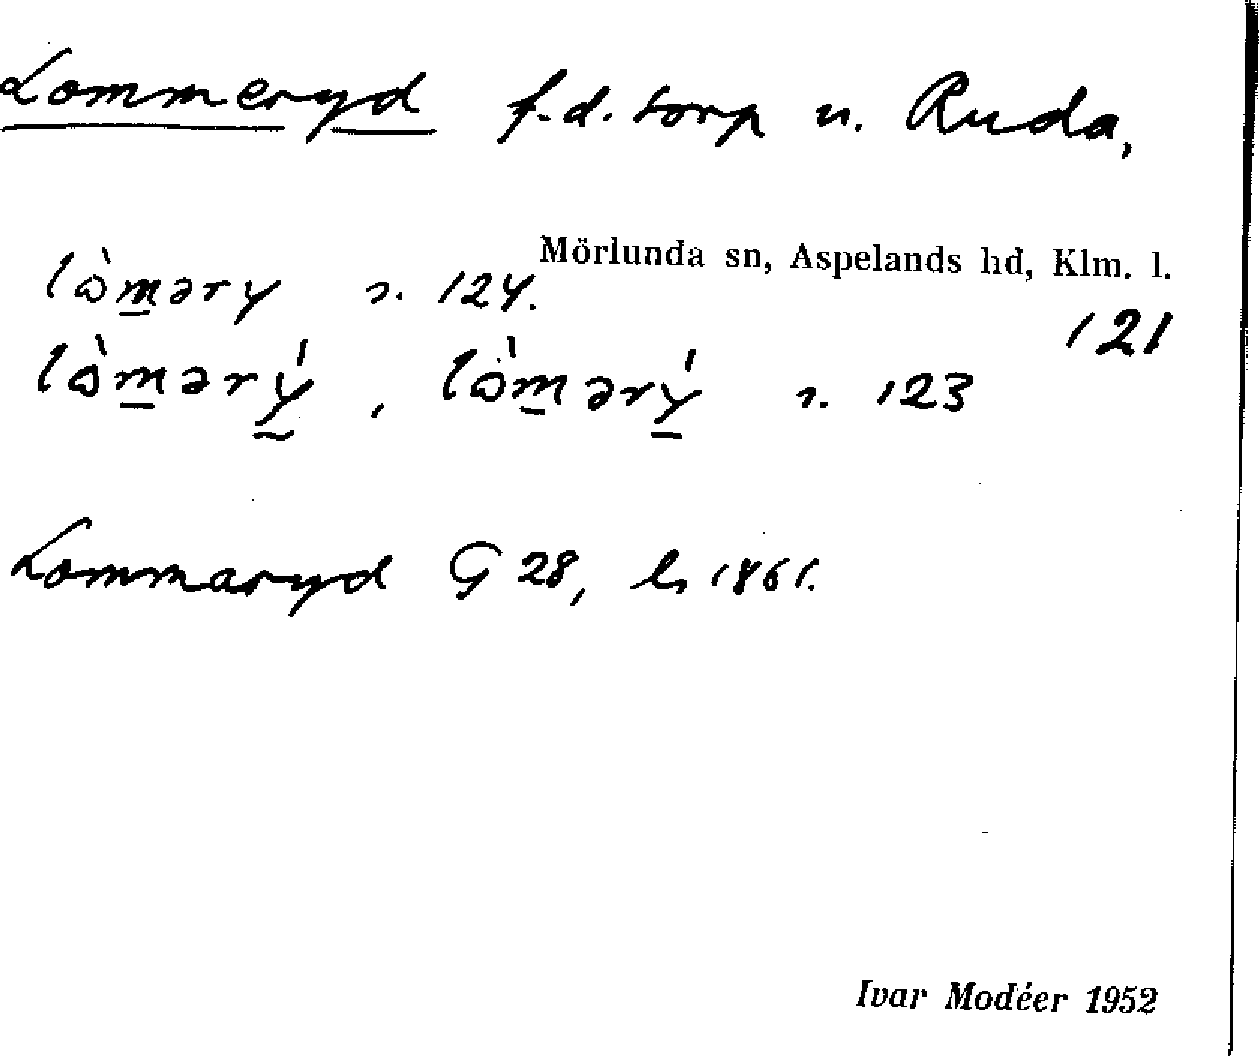 Lommeryd f.d. torp u. Ruda,
Mörlunda sn, Aspelands hd, Klm. l.
lò̀m̲əry s. 124.
121
lò̀m̲ərý, lò̀m̲ərý s. 123
Lommaryd G 28, ls 1861.
Ivar Modéer 1952